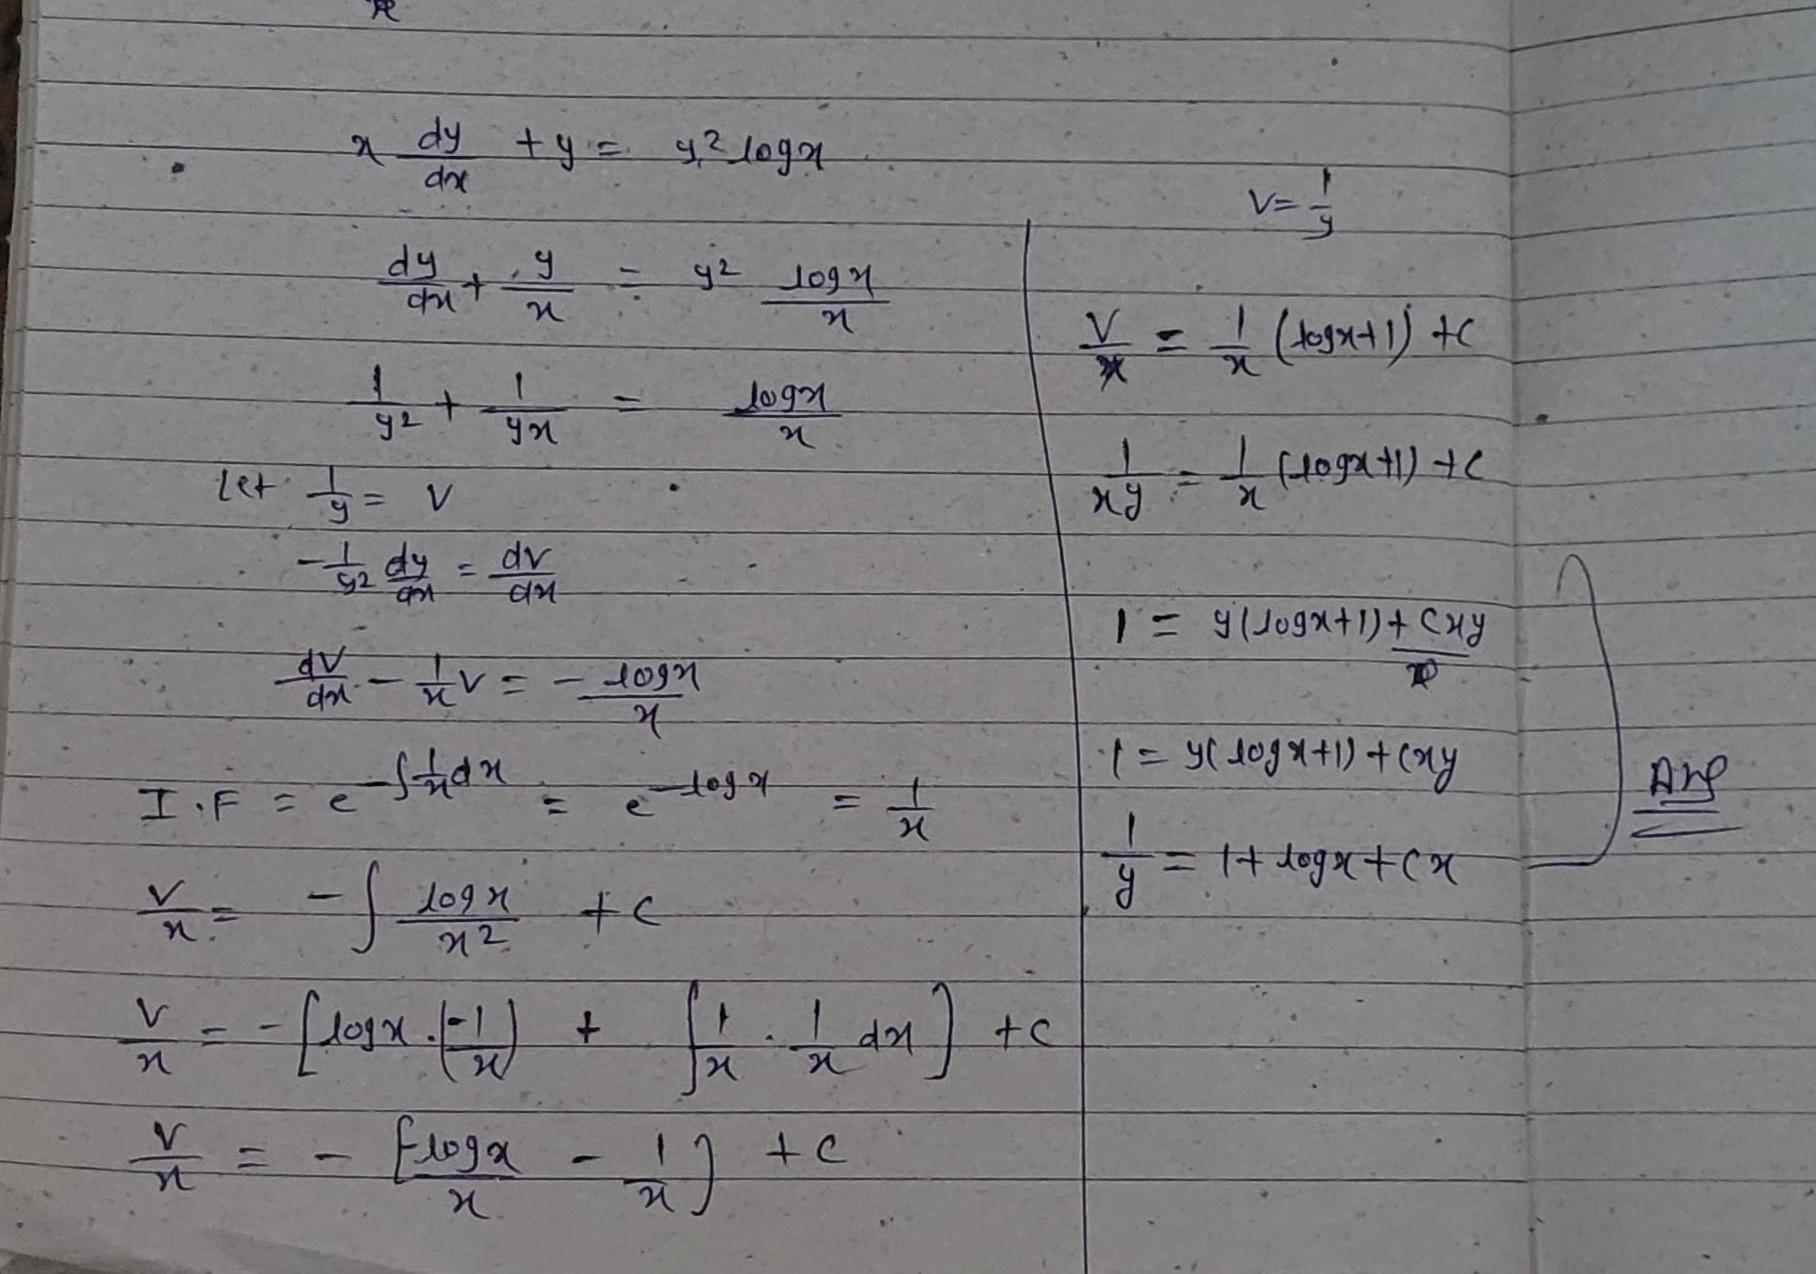 x dy/dx + y = y² logx
dy/dx + y/x = y² logx/x
1/y² + 1/yx = logx/x
Let 1/y = V
-1/y² dy/dx = dv/dx
dV/dx - 1/x V = - logx/x
I.F = e^-∫1/x dx = e^-logx = 1/x
V/x = - ∫ logx/x² + C
V/x = - [logx . (-1/x) + ∫ 1/x . 1/x dx] + C
V/x = - [-logx/x - 1/x] + C
V = 1/y
V/x = 1/x (logx+1) + C
1/xy = 1/x (logx+1) + C
1 = y(logx+1) + Cxy
1 = y(logx+1) + Cxy
1/y = 1 + logx + Cx
Ans